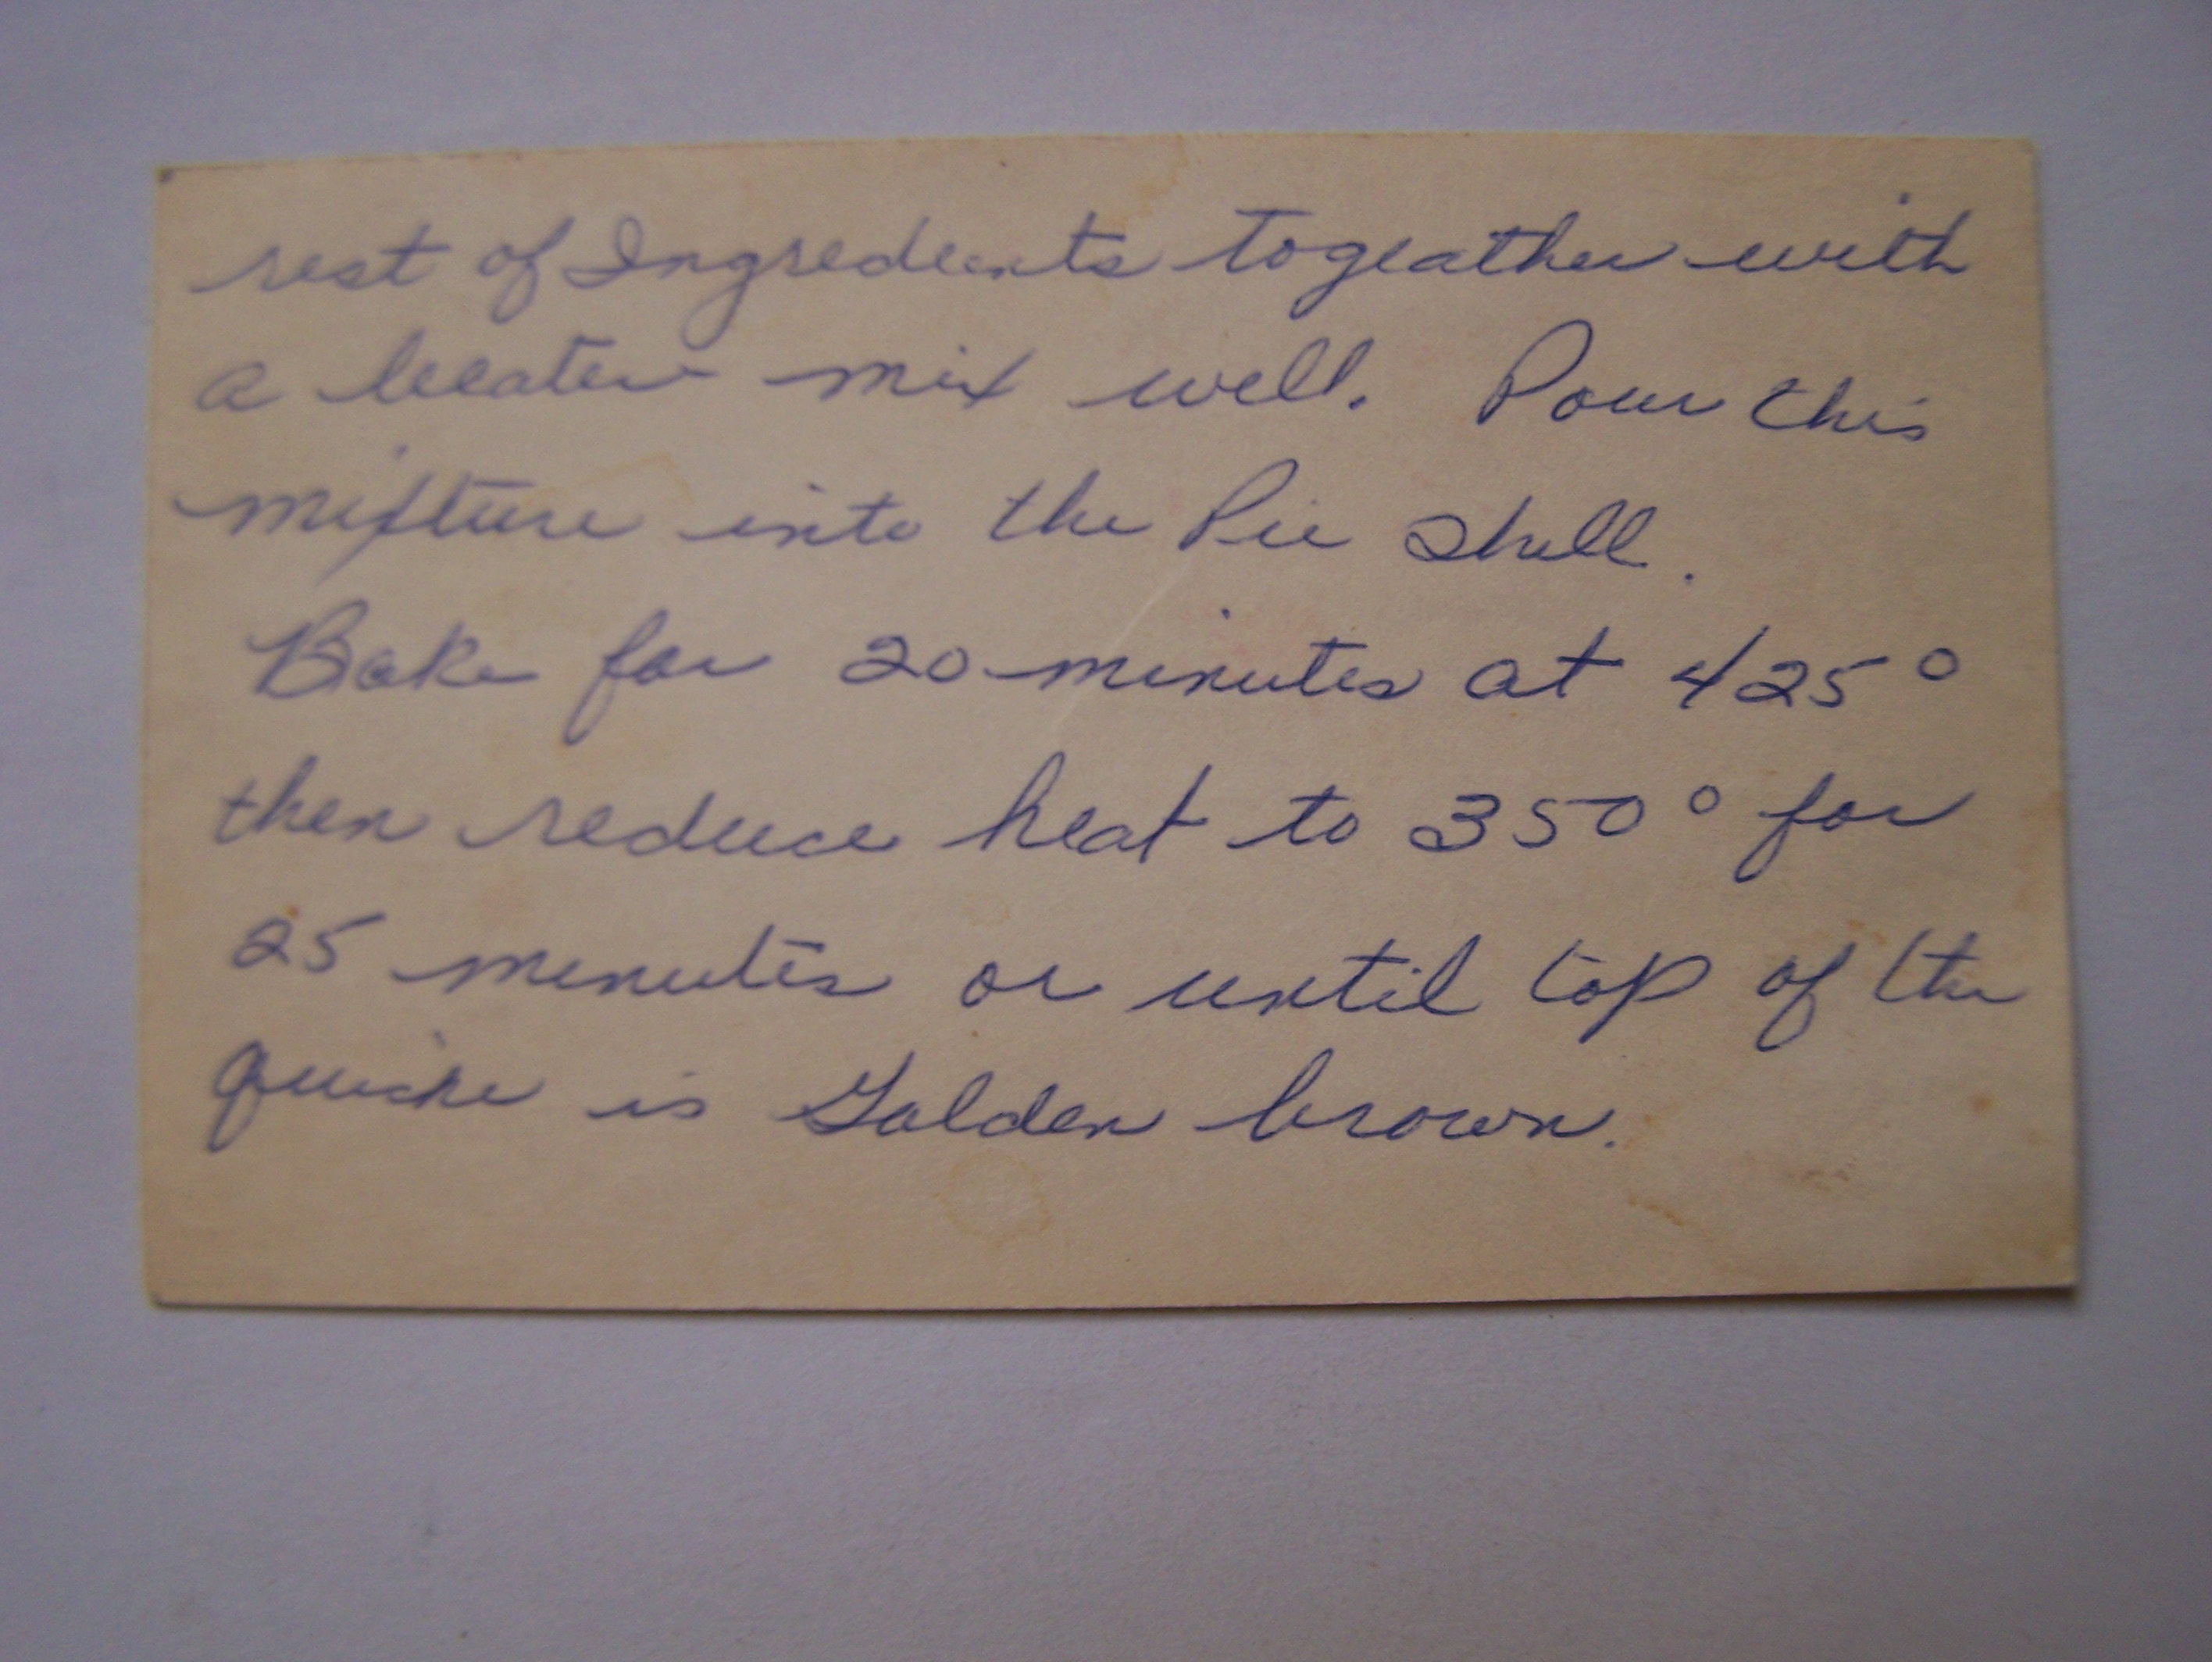 rest of Ingredients togeather with
a beater mix well. Pour this
mixture into the Pie Shell.
Bake for 20 minutes at 425°
then reduce heat to 350° for
25 minutes or until top of the
quiche is Golden brown.